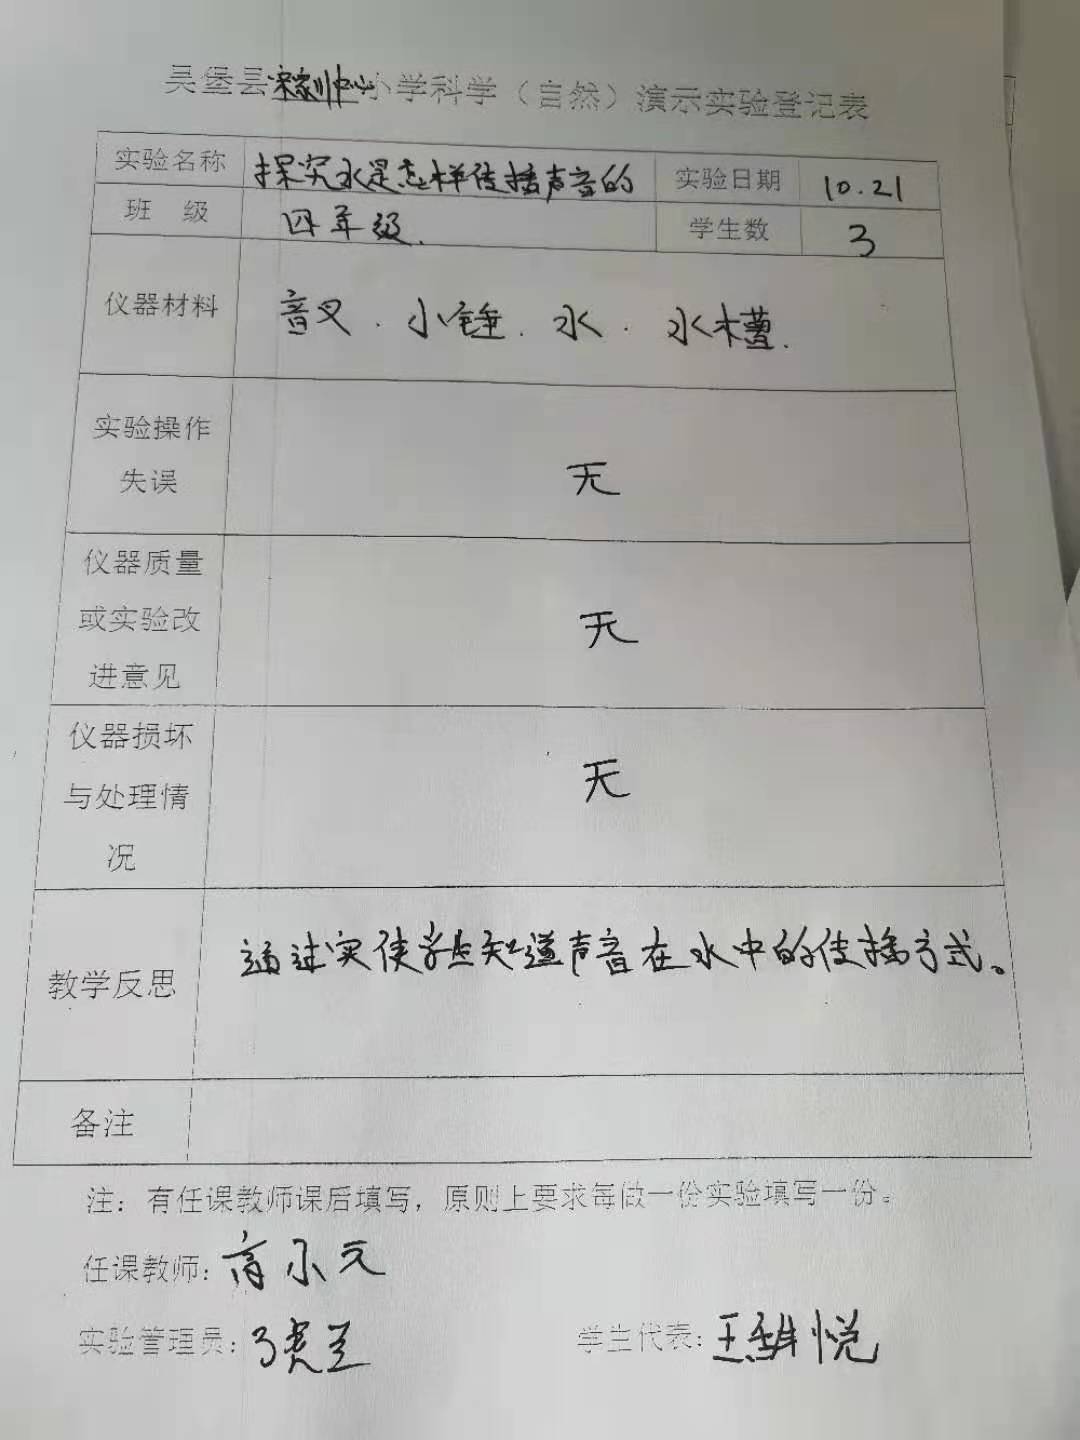 吴堡县宋家川中心小学科学（自然）演示实验登记表
实验名称 探究水是怎样传播声音的 实验日期 10.21
班 级 四年级. 学生数 3
仪器材料 音叉.小锤.水.水槽.
实验操作
失误
无
仪器质量
或实验改
进意见
无
仪器损坏
与处理情
况
无
教学反思 通过实使学生知道声音在水中的传播方式。
备注
注：有任课教师课后填写，原则上要求每做一份实验填写一份。
任课教师：高小元
实验管理员：
学生代表：王 悦